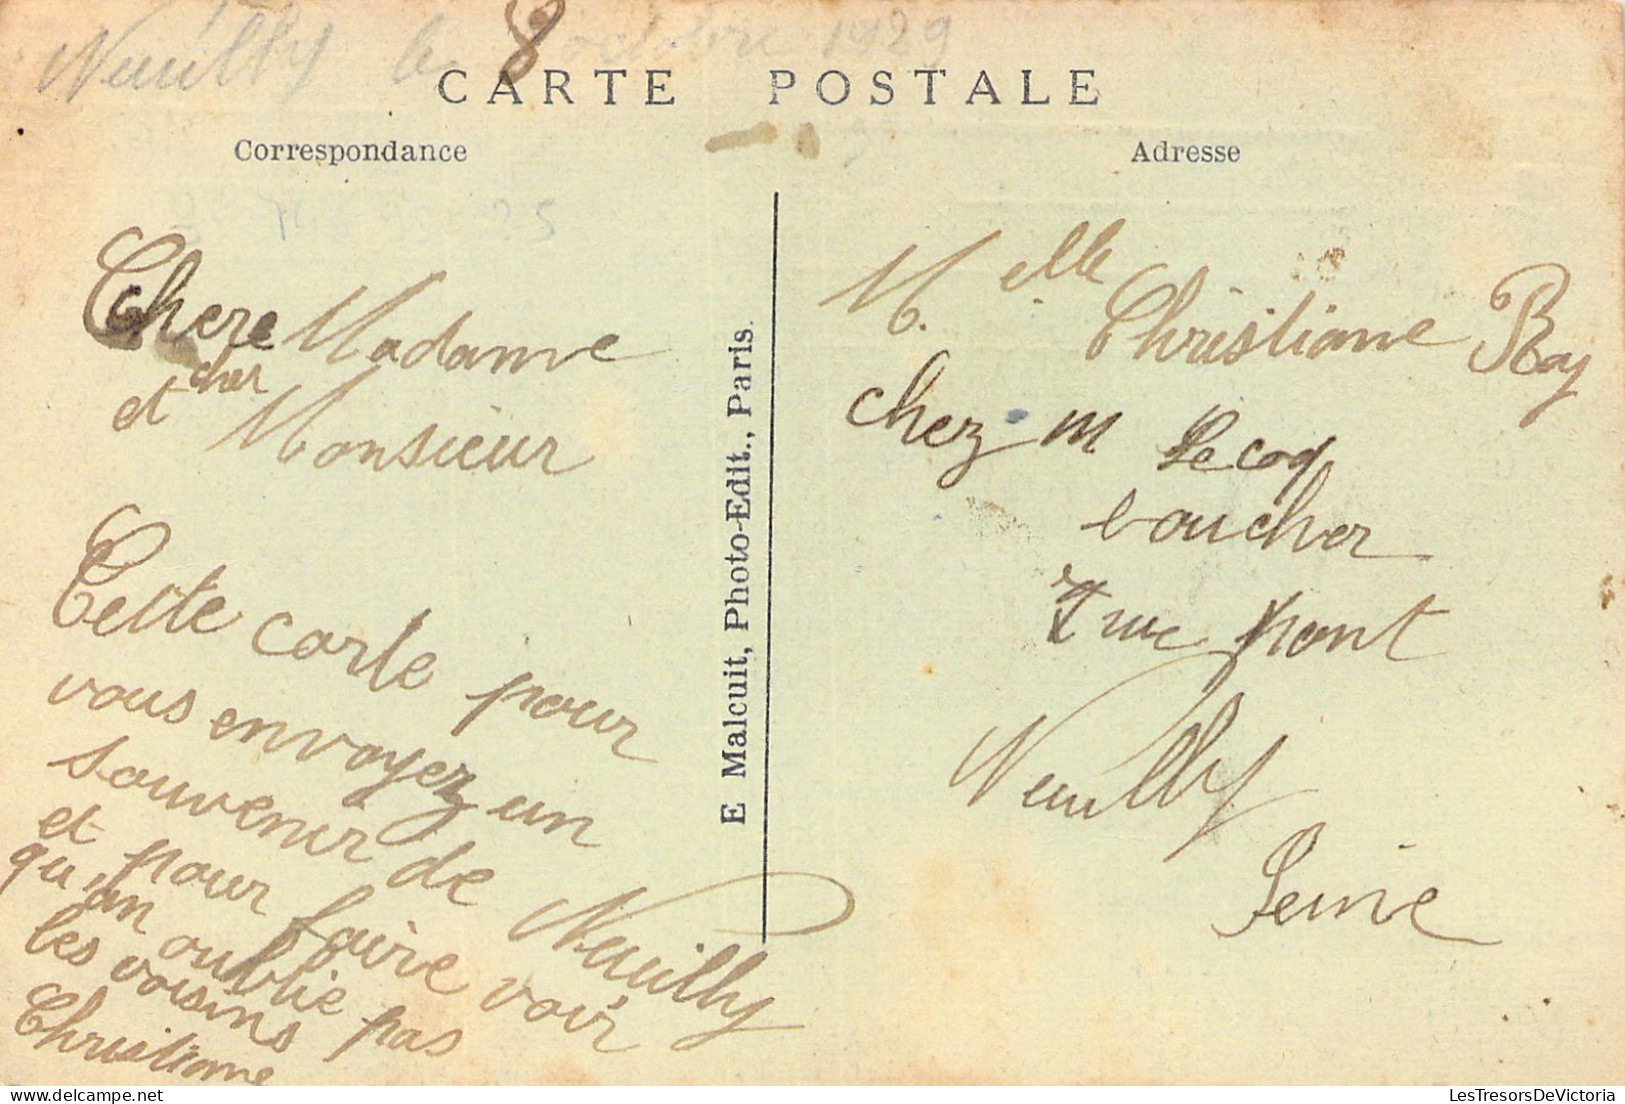 Neuilly le 8 octobre 1929
CARTE POSTALE
Correspondance
Adresse
Chere Madame
et cher Monsieur
Cette carte pour
vous envoyez un
souvenir de Neuilly
et pour faire voir
qu'on oublie pas
les voisins
Christiane
E Malcuit, Photo-Edit., Paris.
M.elle Christiane Roy
chez m Le coq
boucher
7 rue pont
Neuilly
Seine
LesTresorsDeVictoria